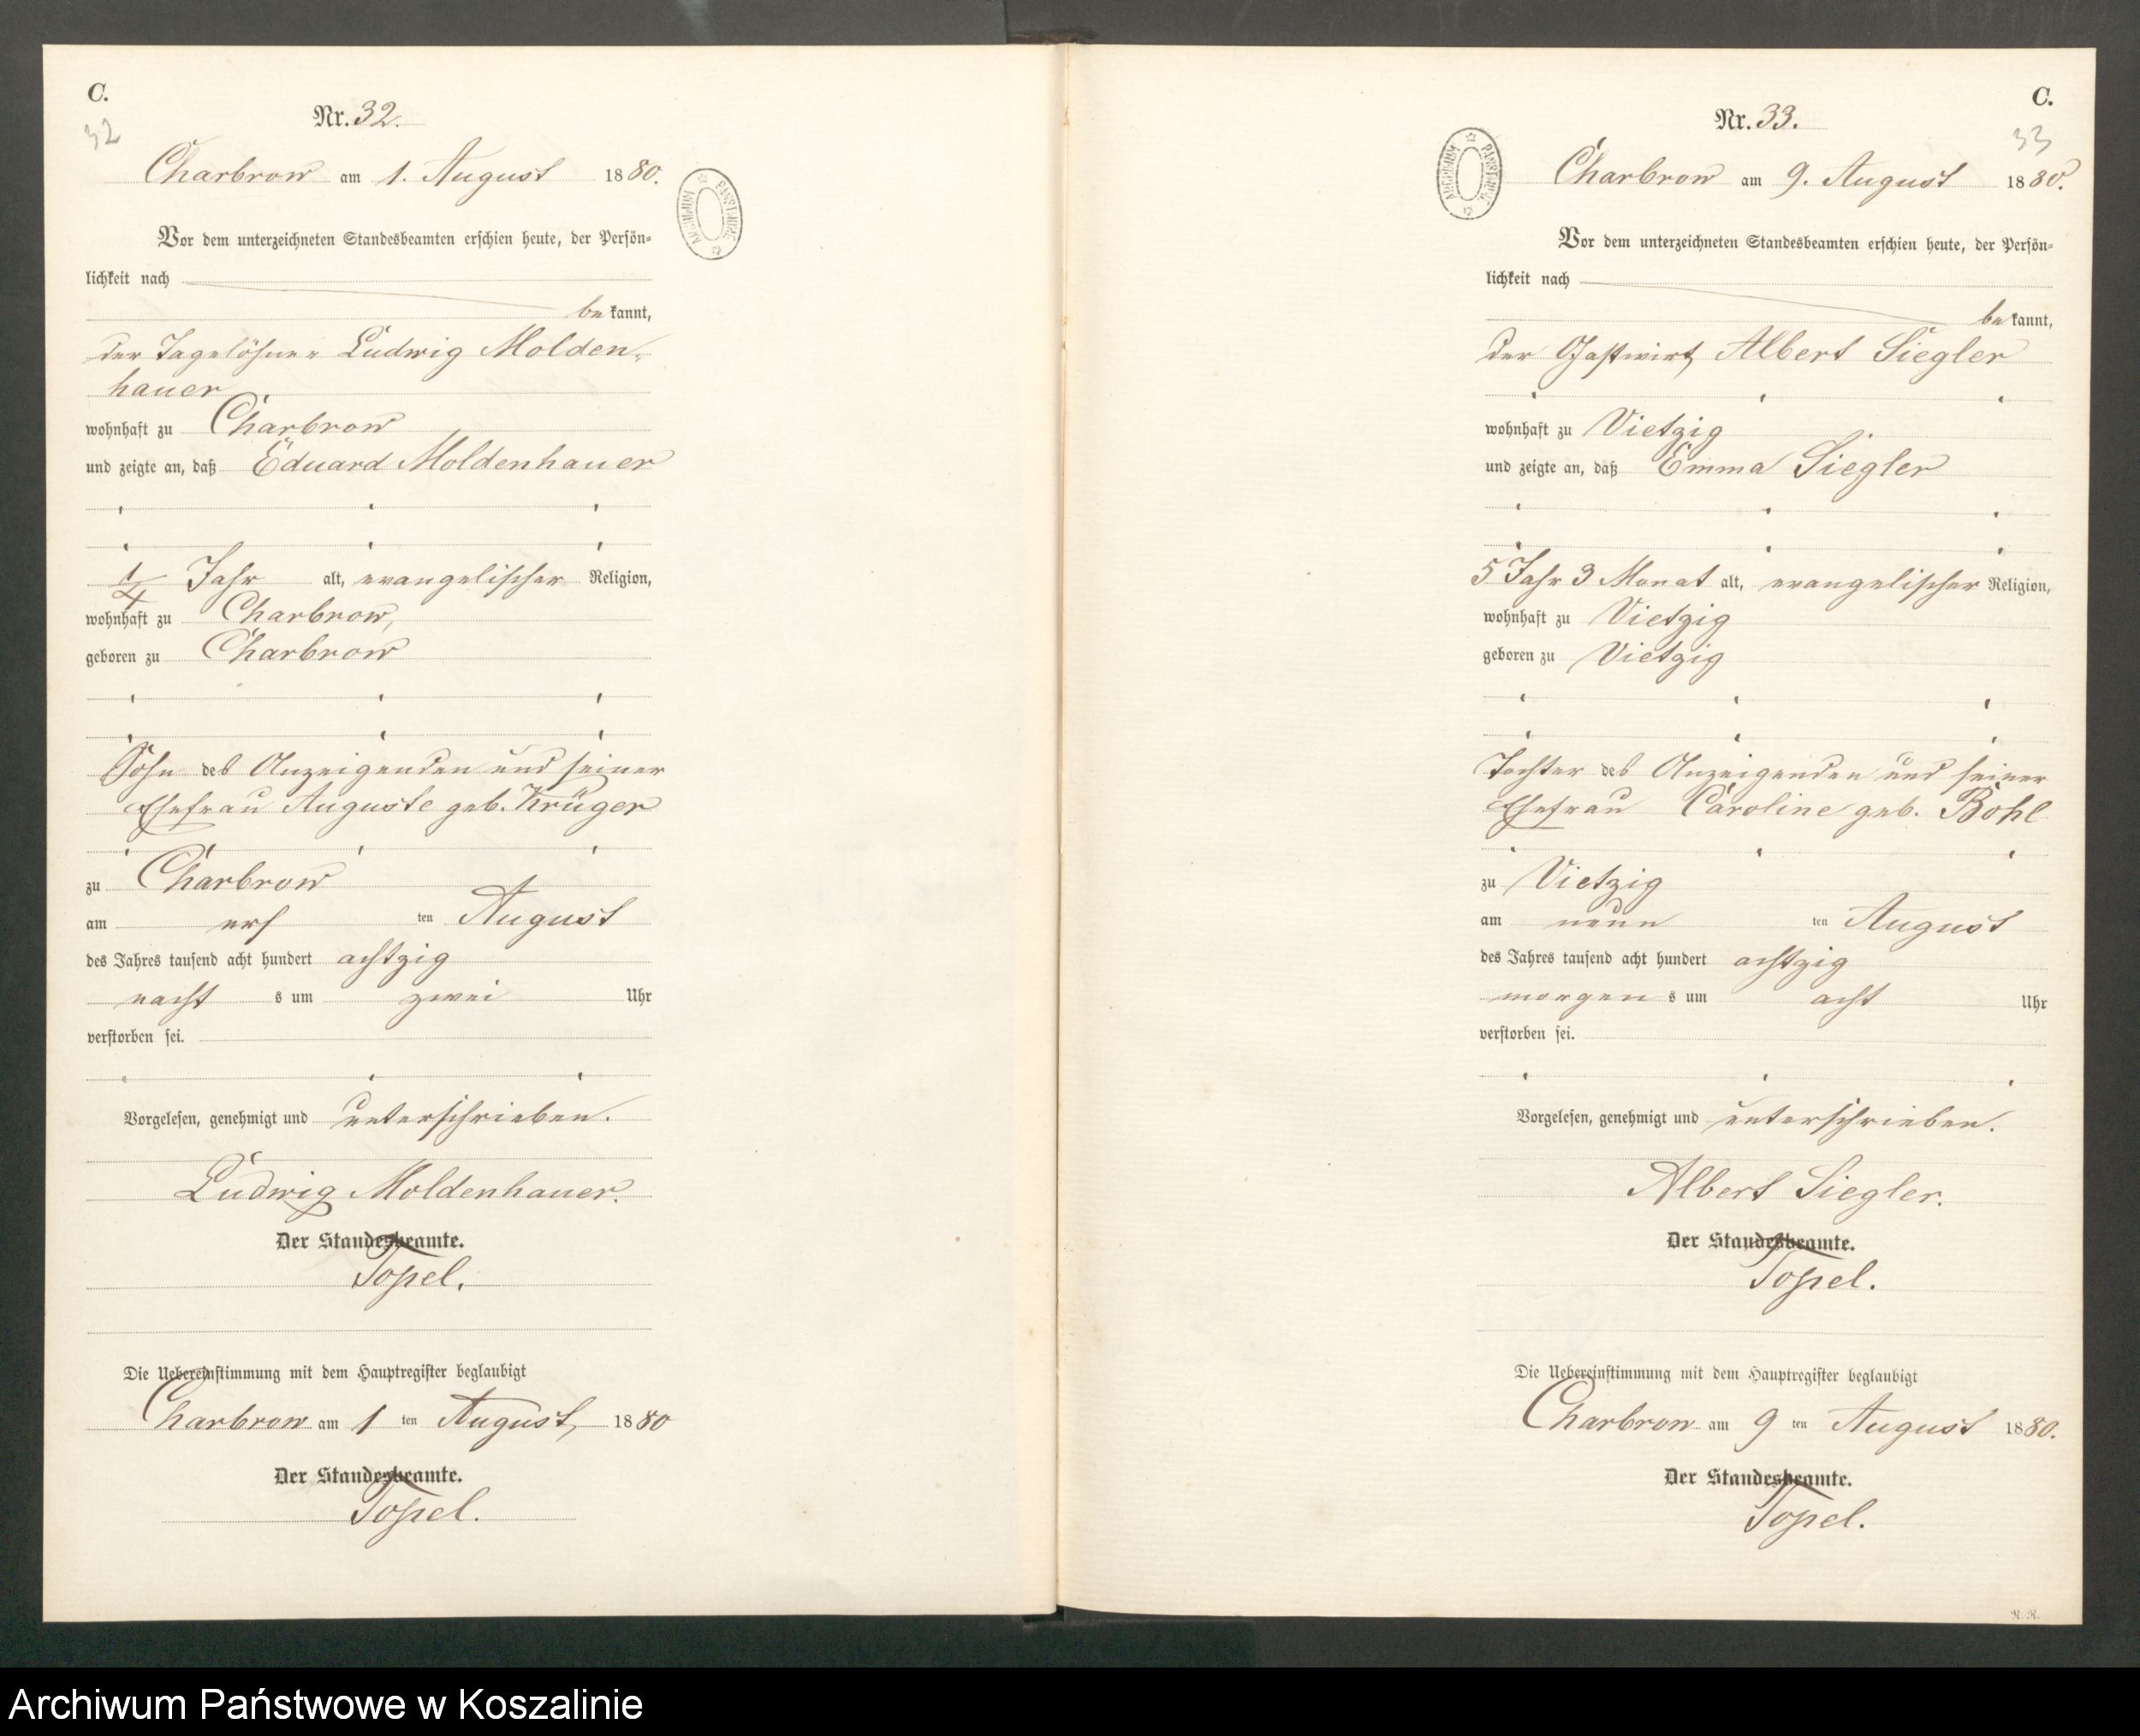 C.
32
Nr. 32.
Charbrow am 1. August 1880.
ARCHIWUM PAŃSTWOWE
Vor dem unterzeichneten Standesbeamten erschien heute, der Persön-
lichkeit nach
bekannt,
der Tagelöhner Ludwig Molden-
hauer
wohnhaft zu Charbrow
und zeigte an, daß Eduard Moldenhauer
1/4 Jahr alt, evangelischer Religion,
wohnhaft zu Charbrow,
geboren zu Charbrow
Sohn des Anzeigenden und seiner
Ehefrau Auguste geb. Krüger
zu Charbrow
am ers ten August
des Jahres tausend acht hundert achtzig
nacht s um zwei Uhr
verstorben sei.
Vorgelesen, genehmigt und unterschrieben.
Ludwig Moldenhauer.
Der Standesbeamte.
Topel.
Die Uebereinstimmung mit dem Hauptregister beglaubigt
Charbrow am 1 ten August, 1880
Der Standesbeamte.
Topel.
C.
33
Nr. 33.
Charbrow am 9. August 1880.
ARCHIWUM PAŃSTWOWE
Vor dem unterzeichneten Standesbeamten erschien heute, der Persön-
lichkeit nach
bekannt,
der Gastwirt Albert Siegler
wohnhaft zu Vietzig
und zeigte an, daß Emma Siegler
5 Jahr 3 Monat alt, evangelischer Religion,
wohnhaft zu Vietzig
geboren zu Vietzig
Tochter des Anzeigenden und seiner
Ehefrau Caroline geb. Bohl
zu Vietzig
am neun ten August
des Jahres tausend acht hundert achtzig
morgen s um acht Uhr
verstorben sei.
Vorgelesen, genehmigt und unterschrieben.
Albert Siegler.
Der Standesbeamte.
Topel.
Die Uebereinstimmung mit dem Hauptregister beglaubigt
Charbrow am 9 ten August 1880.
Der Standesbeamte.
Topel.
R. R.
Archiwum Państwowe w Koszalinie